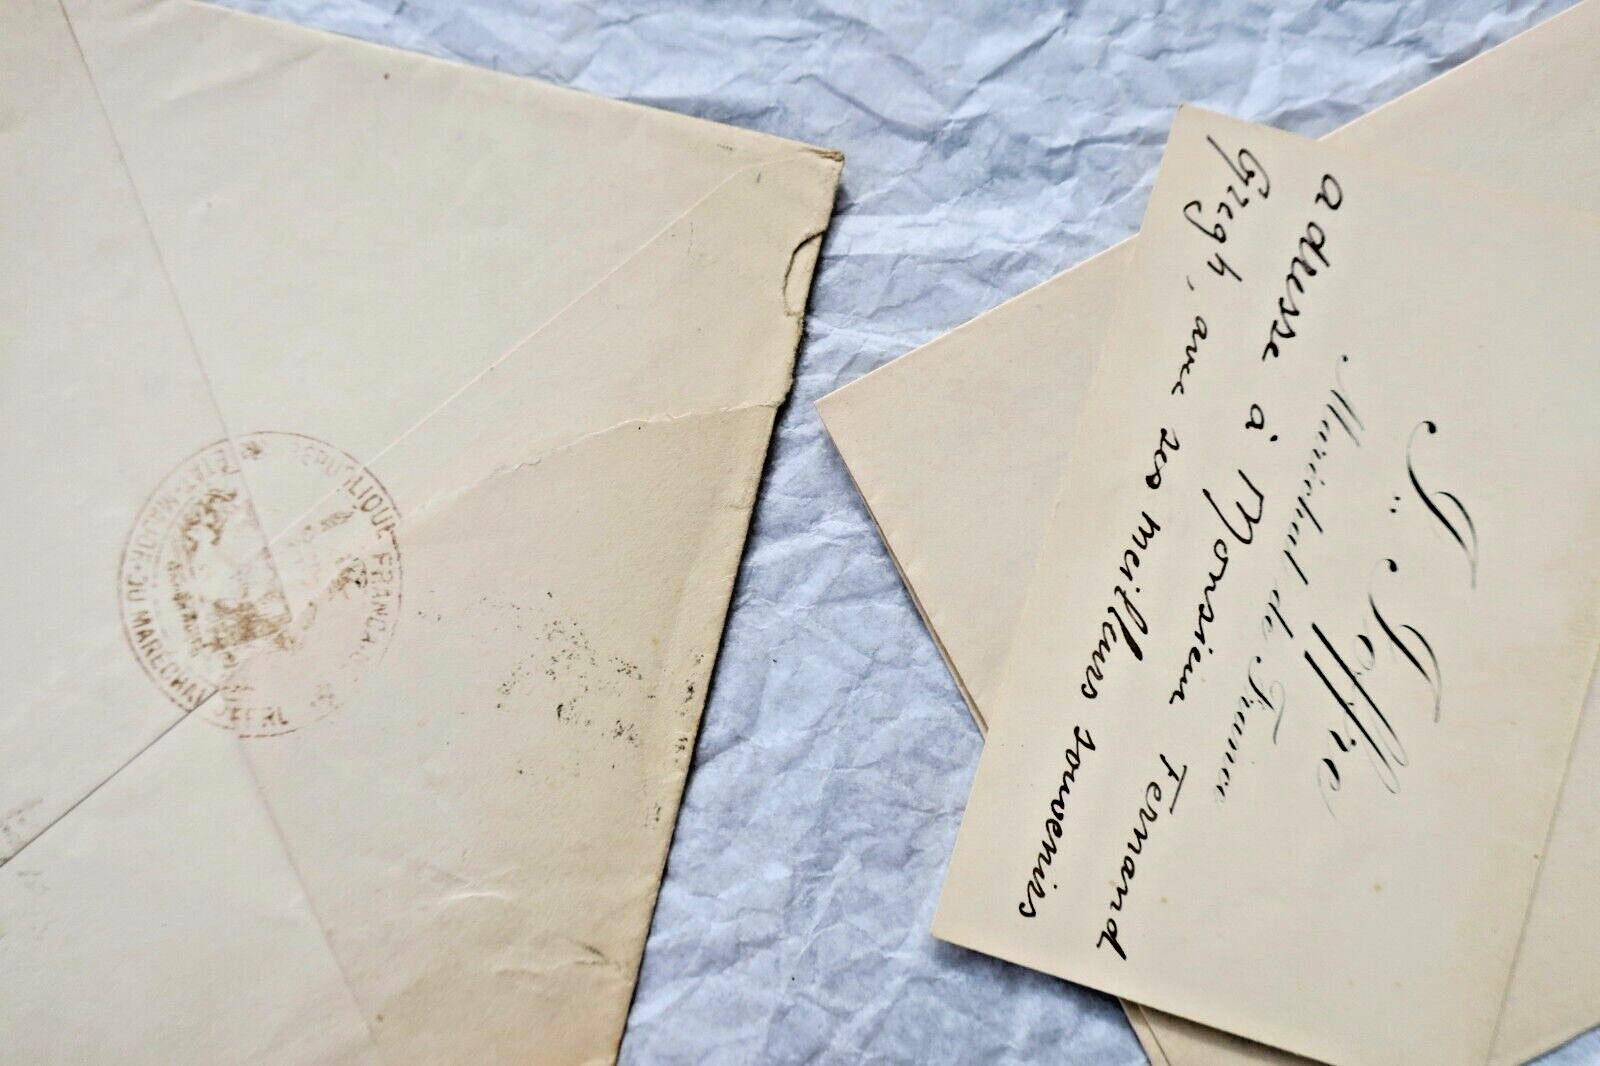 RÉPUBLIQUE FRANÇAISE
ÉTAT-MAJOR DU MARÉCHAL
J. Joffre
Maréchal de France
adresse à Monsieur Fernand
Gregh, avec ses meilleurs souvenirs